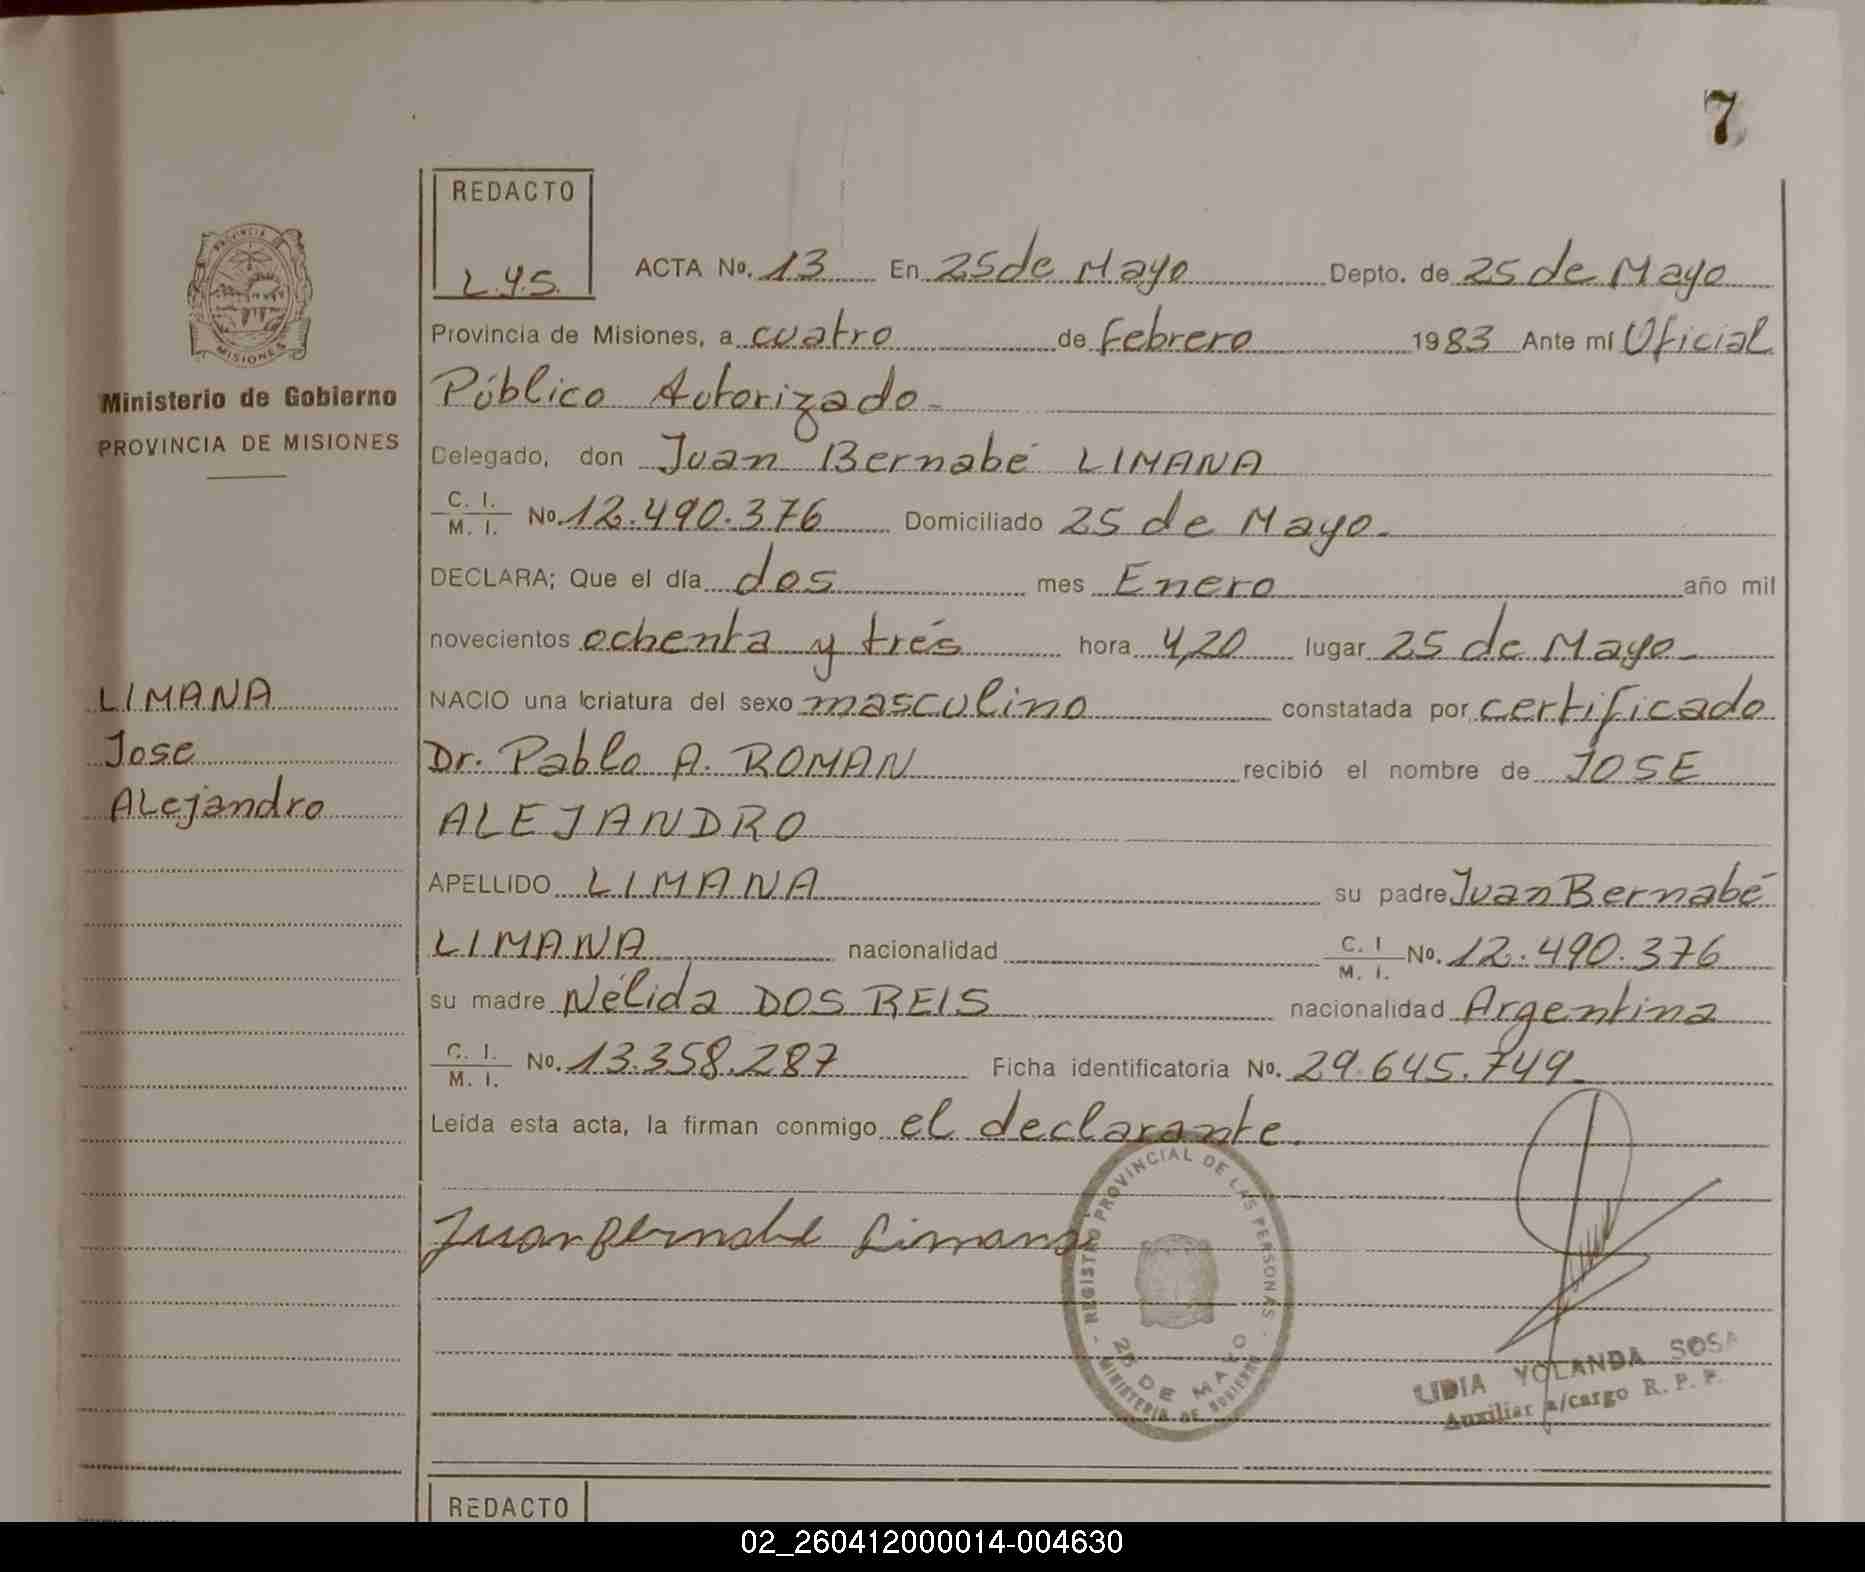 7
REDACTO
L.Y.S.
ACTA No. 13 En 25 de Mayo Depto. de 25 de Mayo
Provincia de Misiones, a cuatro de febrero 1983 Ante mí Oficial
Público Autorizado-
Delegado, don Juan Bernabé LIMANA
C. I.
M. I. No. 12.490.376 Domiciliado 25 de Mayo-
DECLARA; Que el día dos mes Enero año mil
novecientos ochenta y trés hora 4,20 lugar 25 de Mayo-
NACIO una criatura del sexo masculino constatada por certificado
Dr. Pablo A. ROMAN recibió el nombre de JOSE
ALEJANDRO
APELLIDO LIMANA su padre Juan Bernabé
LIMANA nacionalidad C. I
M. I. No. 12.490.376
su madre Nélida DOS REIS nacionalidad Argentina
C. I.
M. I. No. 13.358.287 Ficha identificatoria No. 29.645.749-
Leída esta acta, la firman conmigo el declarante.
Juan Bernabé Limana
REGISTRO PROVINCIAL DE LAS PERSONAS
25 DE MAYO
MINISTERIO DE GOBIERNO
LIDIA YOLANDA SOSA
Auxiliar a/cargo R. P. P.
PROVINCIA DE
MISIONES
Ministerio de Gobierno
PROVINCIA DE MISIONES
LIMANA
Jose
ALejandro
REDACTO
02_260412000014-004630